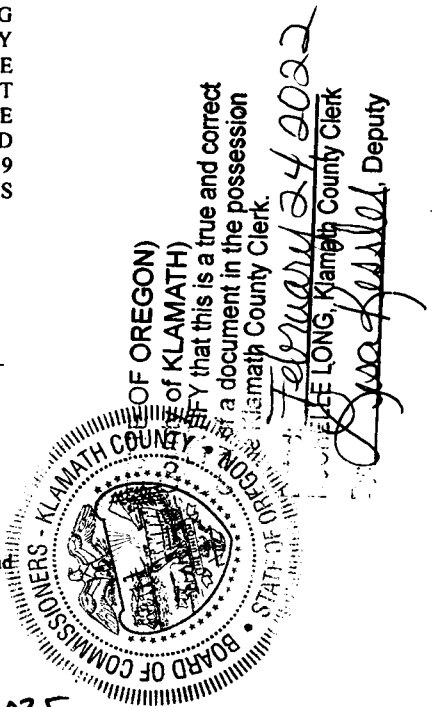 G
Y
E
T
E
D
9
S
E OF OREGON)
of KLAMATH)
FY that this is a true and correct
of a document in the possession
Klamath County Clerk.
February 24 2022
LEE LONG, Klamath County Clerk
Lisa Kessler, Deputy
BOARD OF COMMISSIONERS - KLAMATH COUNTY
STATE OF OREGON